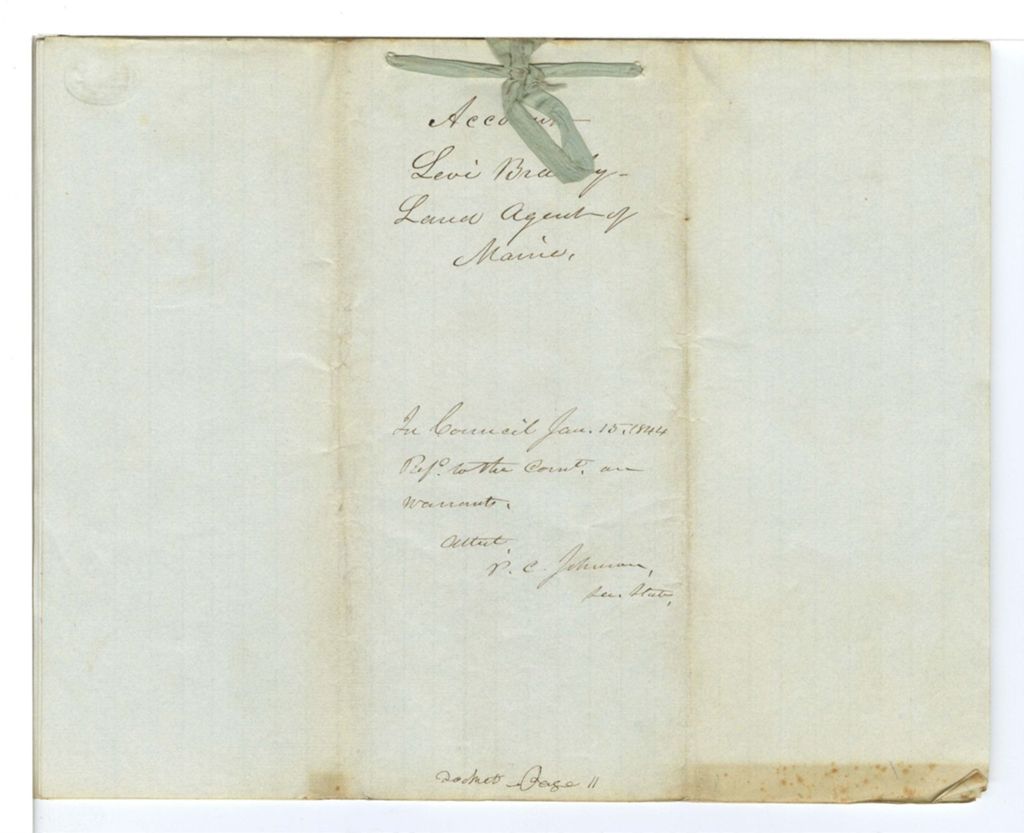 Account
Levi Bradley
Land Agent of
Maine,
In Council Jan. 15. 1844
Refd. to the Comt. on
Warrants.
Attest,
P. C. Johnson,
Sec. State,
docket Page 11